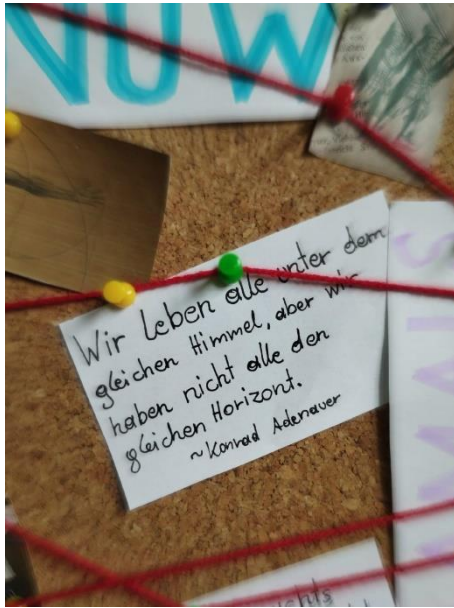 NOW
Wir leben alle unter dem
gleichen Himmel, aber wir
haben nicht alle den
gleichen Horizont.
~Konrad Adenauer